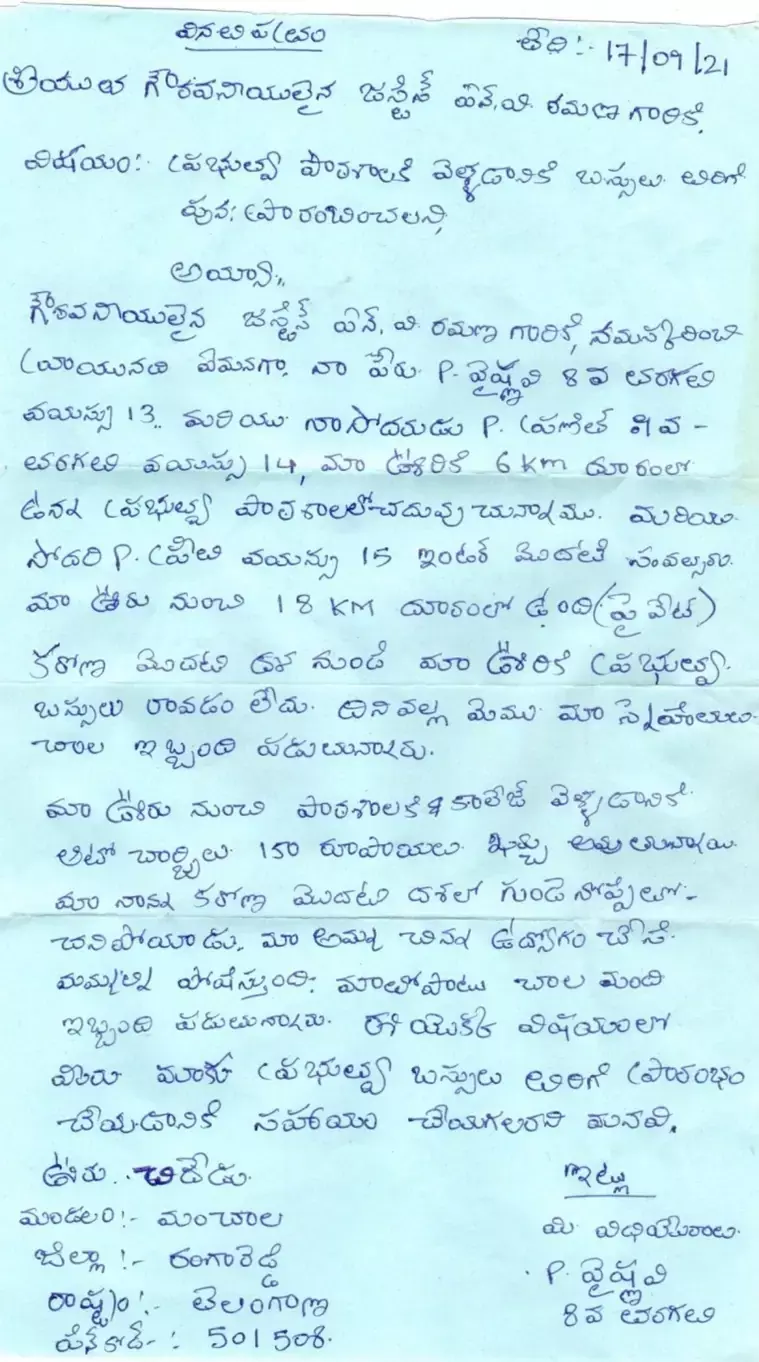 వినతి పత్రం
తేది:- 17/09/21
శ్రీయుత గౌరవనీయులైన జస్టిస్ ఎన్.వి. రమణ గారికి,
విషయం:- ప్రభుత్వ పాఠశాలకి వెళ్ళడానికి బస్సులు తిరిగి
పున: ప్రారంభించాలని,
అయ్యా,,
గౌరవనీయులైన జస్టిస్ ఎన్. వి రమణ గారికి, నమస్కరించి
వ్రాయునది ఏమనగా, నా పేరు P. వైష్ణవి 8 వ తరగతి
వయస్సు 13. మరియు నా సోదరుడు P. ప్రణీత్ 9 వ -
తరగతి వయస్సు 14, మా ఊరికి 6 km దూరంలో
ఉన్న ప్రభుత్వ పాఠశాలలో చదువు చున్నాము. మరియు
సోదరి P. ప్రీతి వయస్సు 15 ఇంటర్ మొదటి సంవత్సరం.
మా ఊరు నుంచి 18 KM దూరంలో ఉంది (ప్రైవేట్)
కరోణ మొదటి దశ నుండి మా ఊరికి ప్రభుత్వ
బస్సులు రావడం లేదు. దీని వల్ల మేము మా స్నేహితులు
చాల ఇబ్బంది పడుతున్నారు.
మా ఊరు నుంచి పాఠశాలకి & కాలేజ్ వెళ్ళడానికి
ఆటో చార్జీలు 150 రూపాయలు ఖర్చు అవుతున్నాయి.
మా నాన్న కరోణ మొదటి దశలో గుండె నొప్పితో -
చనిపోయాడు. మా అమ్మ చిన్న ఉద్యోగం చేసి
మమ్మల్ని పోషిస్తుంది. మాతోపాటు చాల మంది
ఇబ్బంది పడుతున్నారు. ఈ యొక్క విషయంలో
మీరు మాకు ప్రభుత్వ బస్సులు తిరిగి ప్రారంభం
చేయడానికి సహాయం చేయగలరని మనవి.
ఊరు.. చిదేడు.
మండలం:- మంచాల
జిల్లా :- రంగారెడ్డి
రాష్ట్రం :- తెలంగాణ
పిన్ కోడ్ - : 501508.
ఇట్లు
మీ విధేయురాలు.
P. వైష్ణవి
8 వ తరగతి